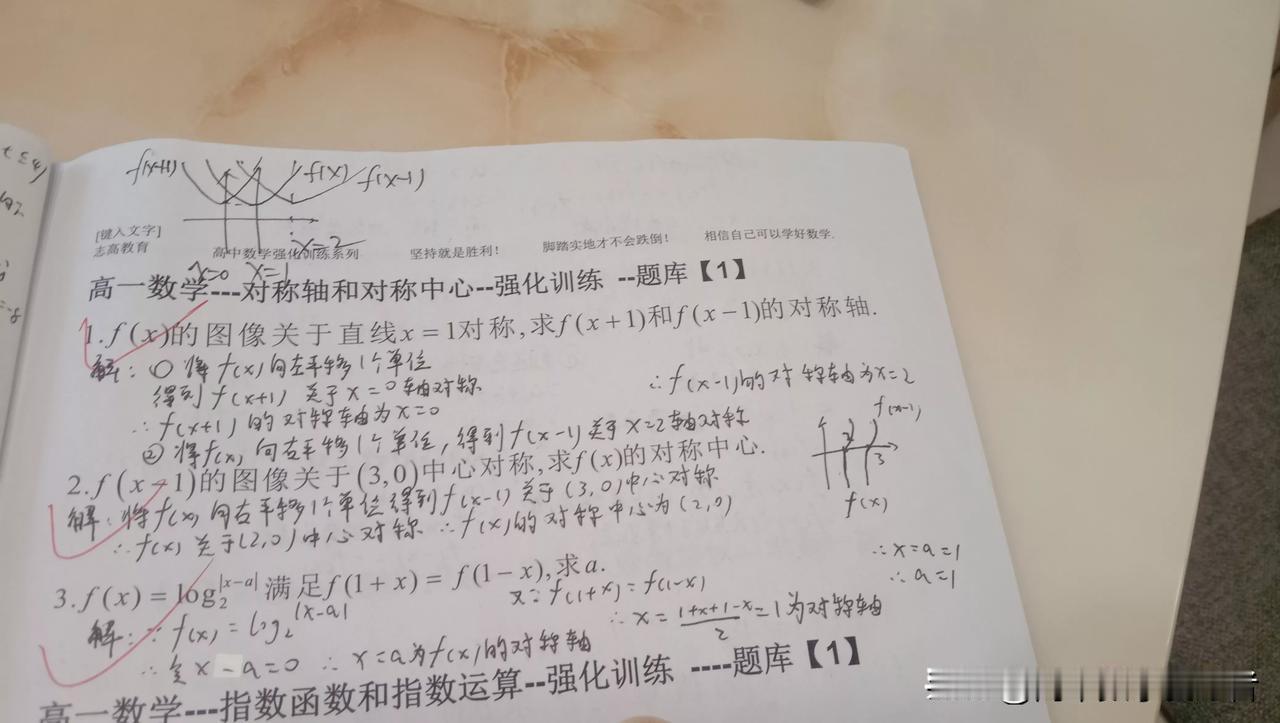 f(x+1)
f(x)
f(x-1)
[键入文字]
志高教育 高中数学强化训练系列 坚持就是胜利！ 脚踏实地才不会跌倒！ 相信自己可以学好数学.
x=2
x=0 x=1
高一数学---对称轴和对称中心--强化训练 --题库【1】
1.f(x)的图像关于直线x=1对称,求f(x+1)和f(x-1)的对称轴.
解：① 将f(x)向左平移1个单位
得到f(x+1)关于x=0轴对称
∴f(x+1)的对称轴为x=0
②将f(x)向右平移1个单位，得到f(x-1)关于x=2轴对称
∴f(x-1)的对称轴为x=2
2.f(x-1)的图像关于(3,0)中心对称,求f(x)的对称中心.
解：将f(x)向右平移1个单位得到f(x-1)关于(3,0)中心对称
∴f(x)关于(2,0)中心对称 ∴f(x)的对称中心为(2,0)
f(x-1)
2 3
f(x)
3.f(x)=log₂^|x-a|满足f(1+x)=f(1-x),求a.
解：∵f(x)=log₂^|x-a|
∴令x-a=0 ∴x=a为f(x)的对称轴
f(1+x)=f(1-x)
∴x=(1+x+1-x)/2=1为对称轴
∴x=a=1
∴a=1
高一数学---指数函数和指数运算--强化训练 ----题库【1】